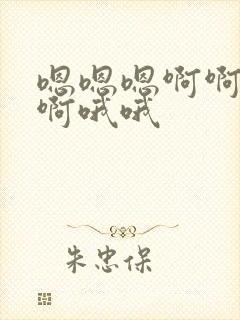 嗯嗯嗯啊啊
啊哦哦
朱忠保